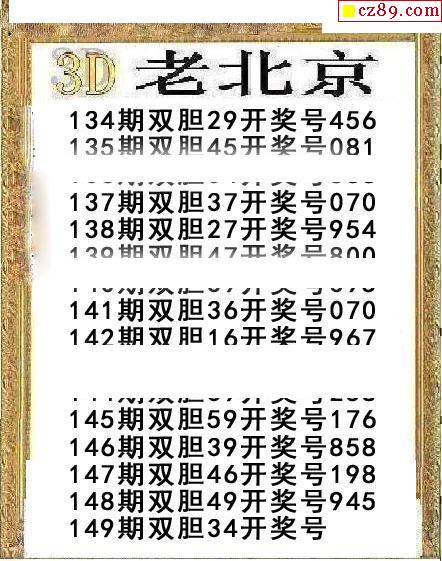 cz89.com
3D 老北京
134期双胆29开奖号456
135期双胆45开奖号081
137期双胆37开奖号070
138期双胆27开奖号954
139期双胆47开奖号800
141期双胆36开奖号070
142期双胆16开奖号967
145期双胆59开奖号176
146期双胆39开奖号858
147期双胆46开奖号198
148期双胆49开奖号945
149期双胆34开奖号